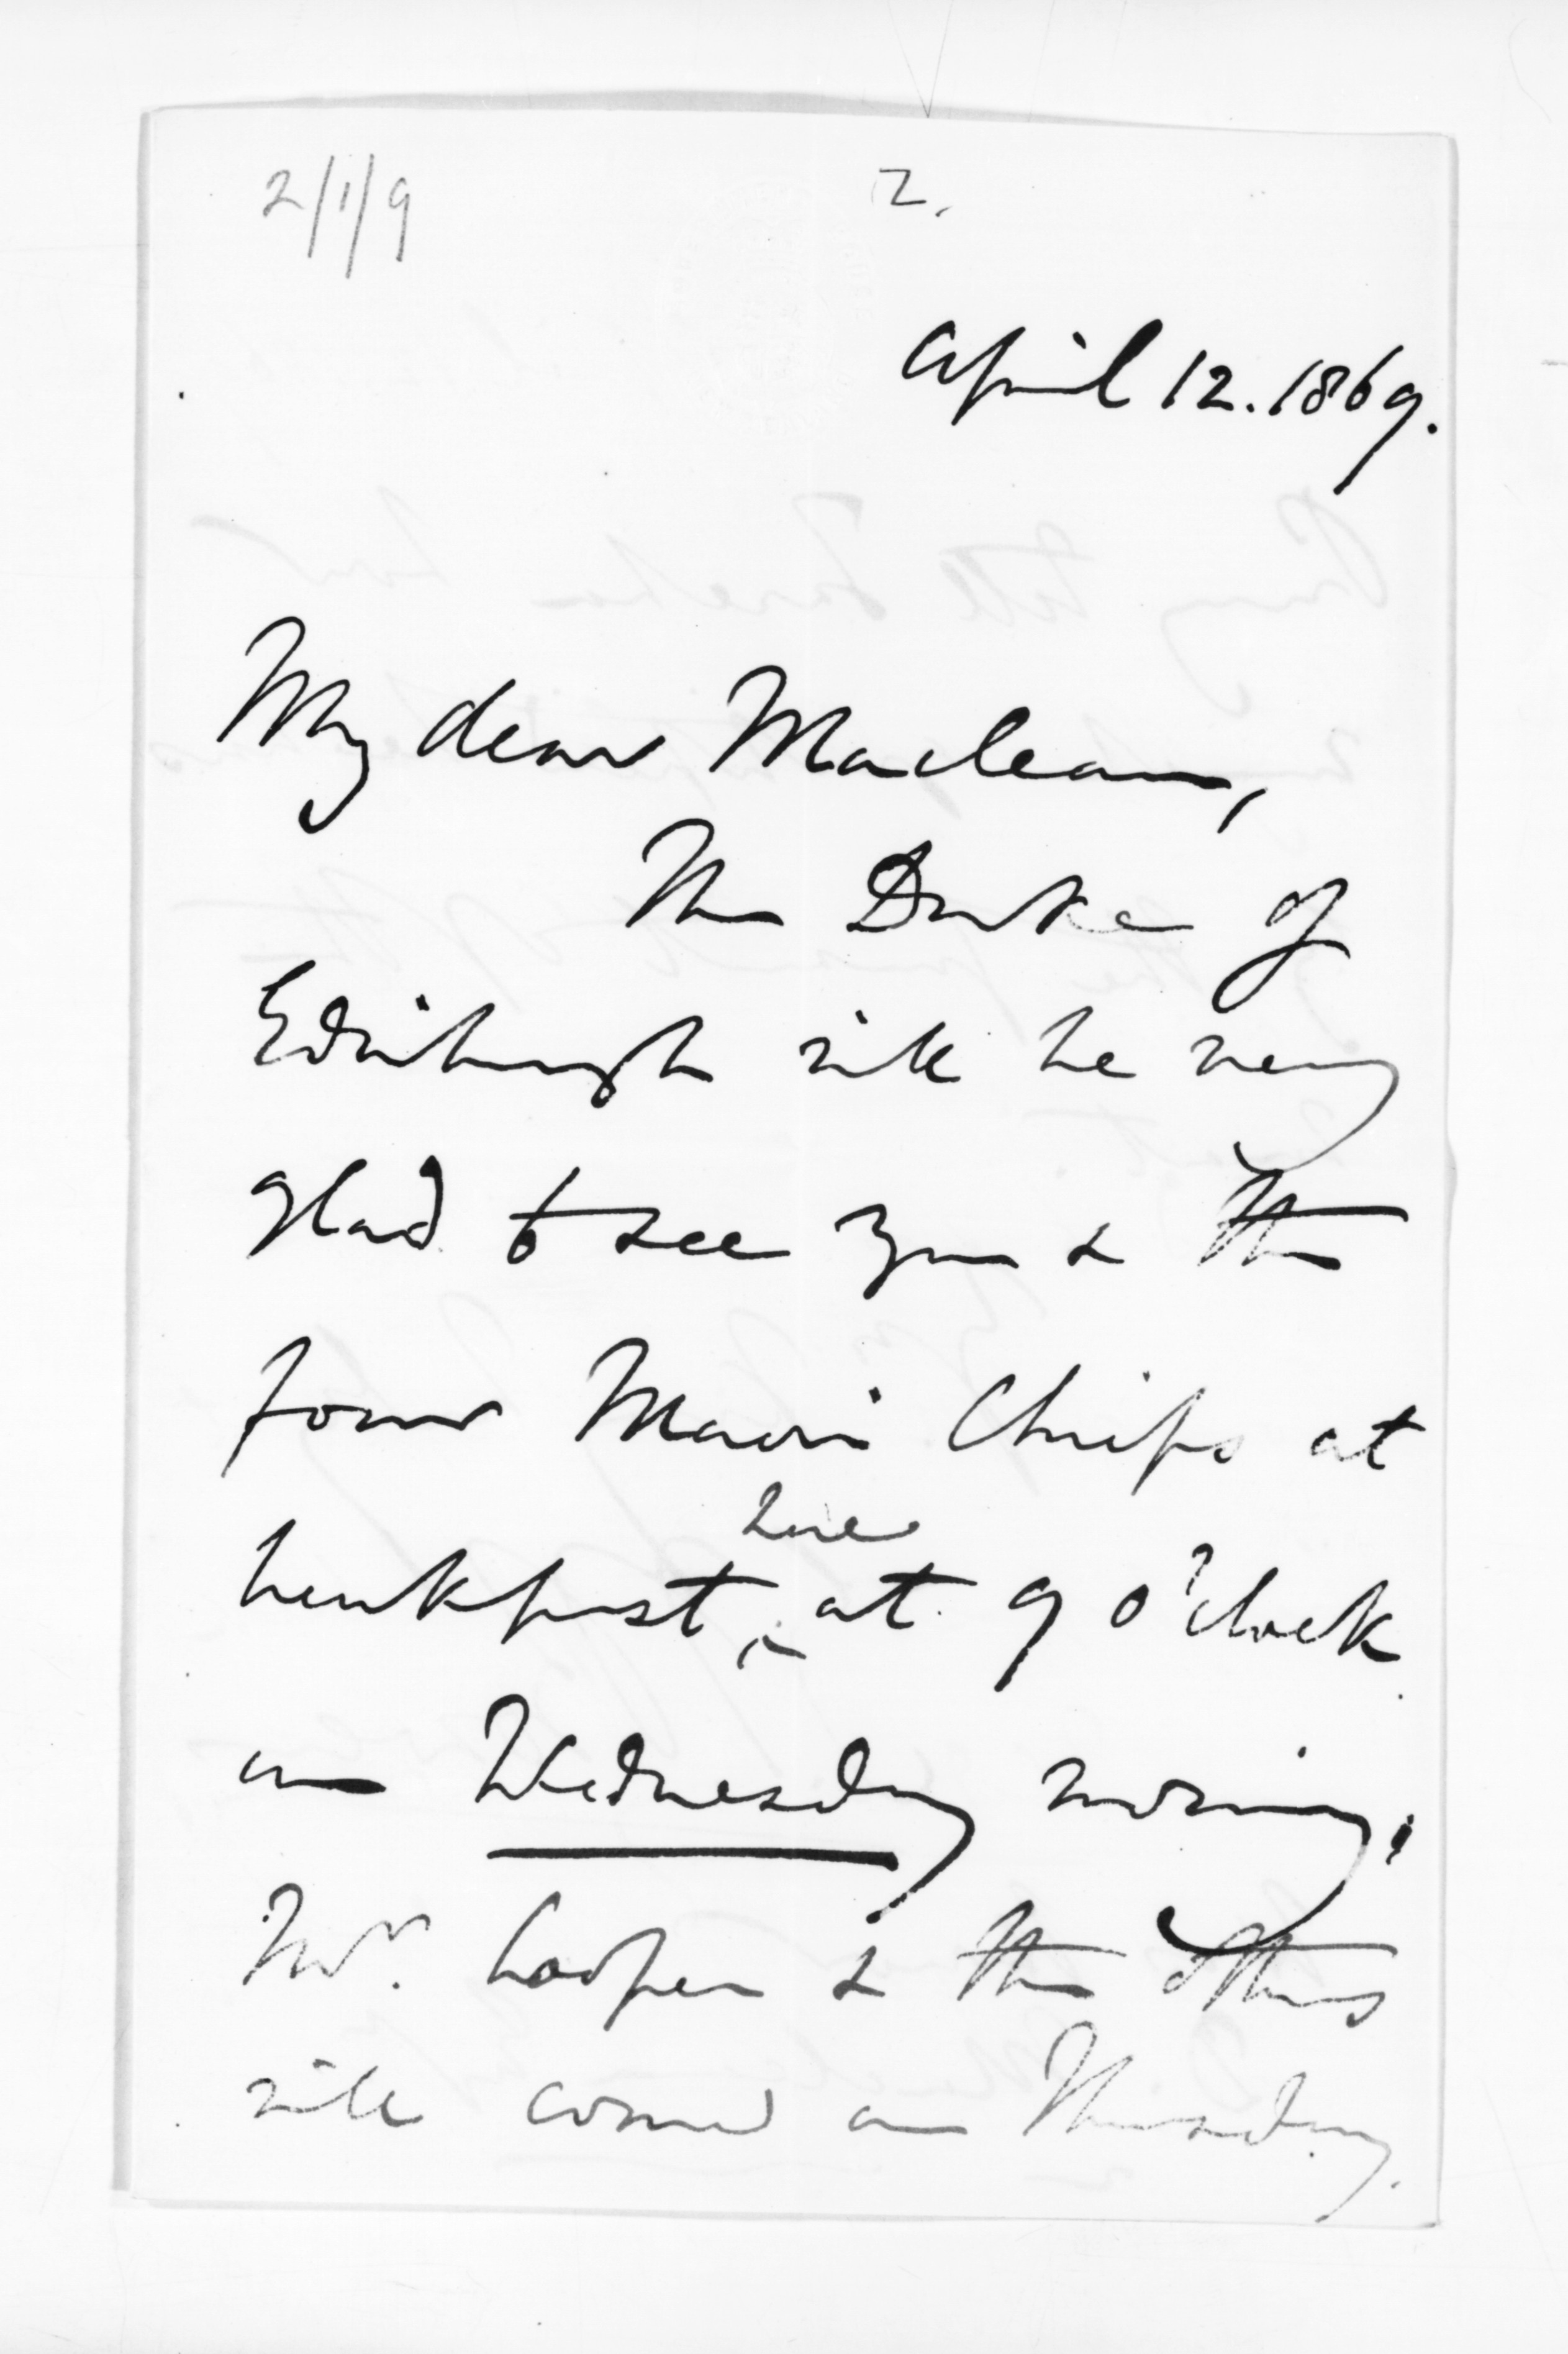 2/1/9
2.
April 12. 1869.
My dear Maclean,
The Duke of
Edinburgh will be very
glad to see you & the
four Maori Chiefs at
here
breakfast, at 9 o'clock
on Wednesday morning;
Mr. Cooper & the others
will come on Thursday.